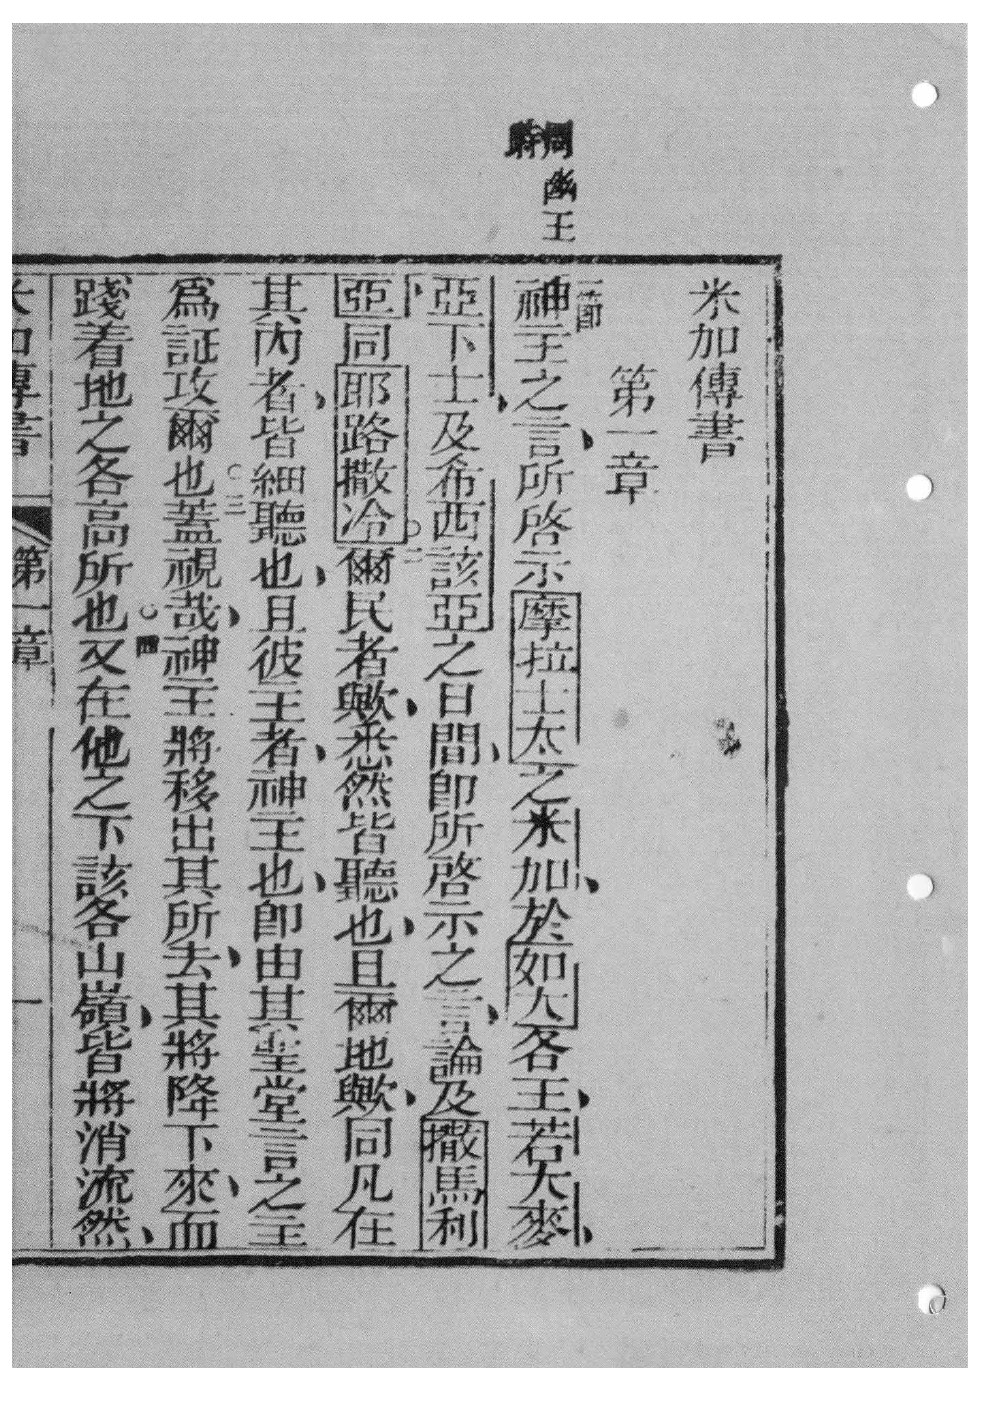 周幽王
時
米加傳書
第一章
一節
神主之言所啓示摩拉士太之米加於如大各王若大麥
亞下士及希西該亞之日間卽所啓示之言論及撒馬利
亞同耶路撒冷○二爾民者歟悉然皆聽也且爾地歟同凡在
其內者皆細聽也且彼主者神主也卽由其聖堂言之主
為証攻爾也○三蓋視哉神主將移出其所去其將降下來而
踐着地之各高所也○四又在他之下該各山嶺皆將消流然
米加傳書 第一章 一